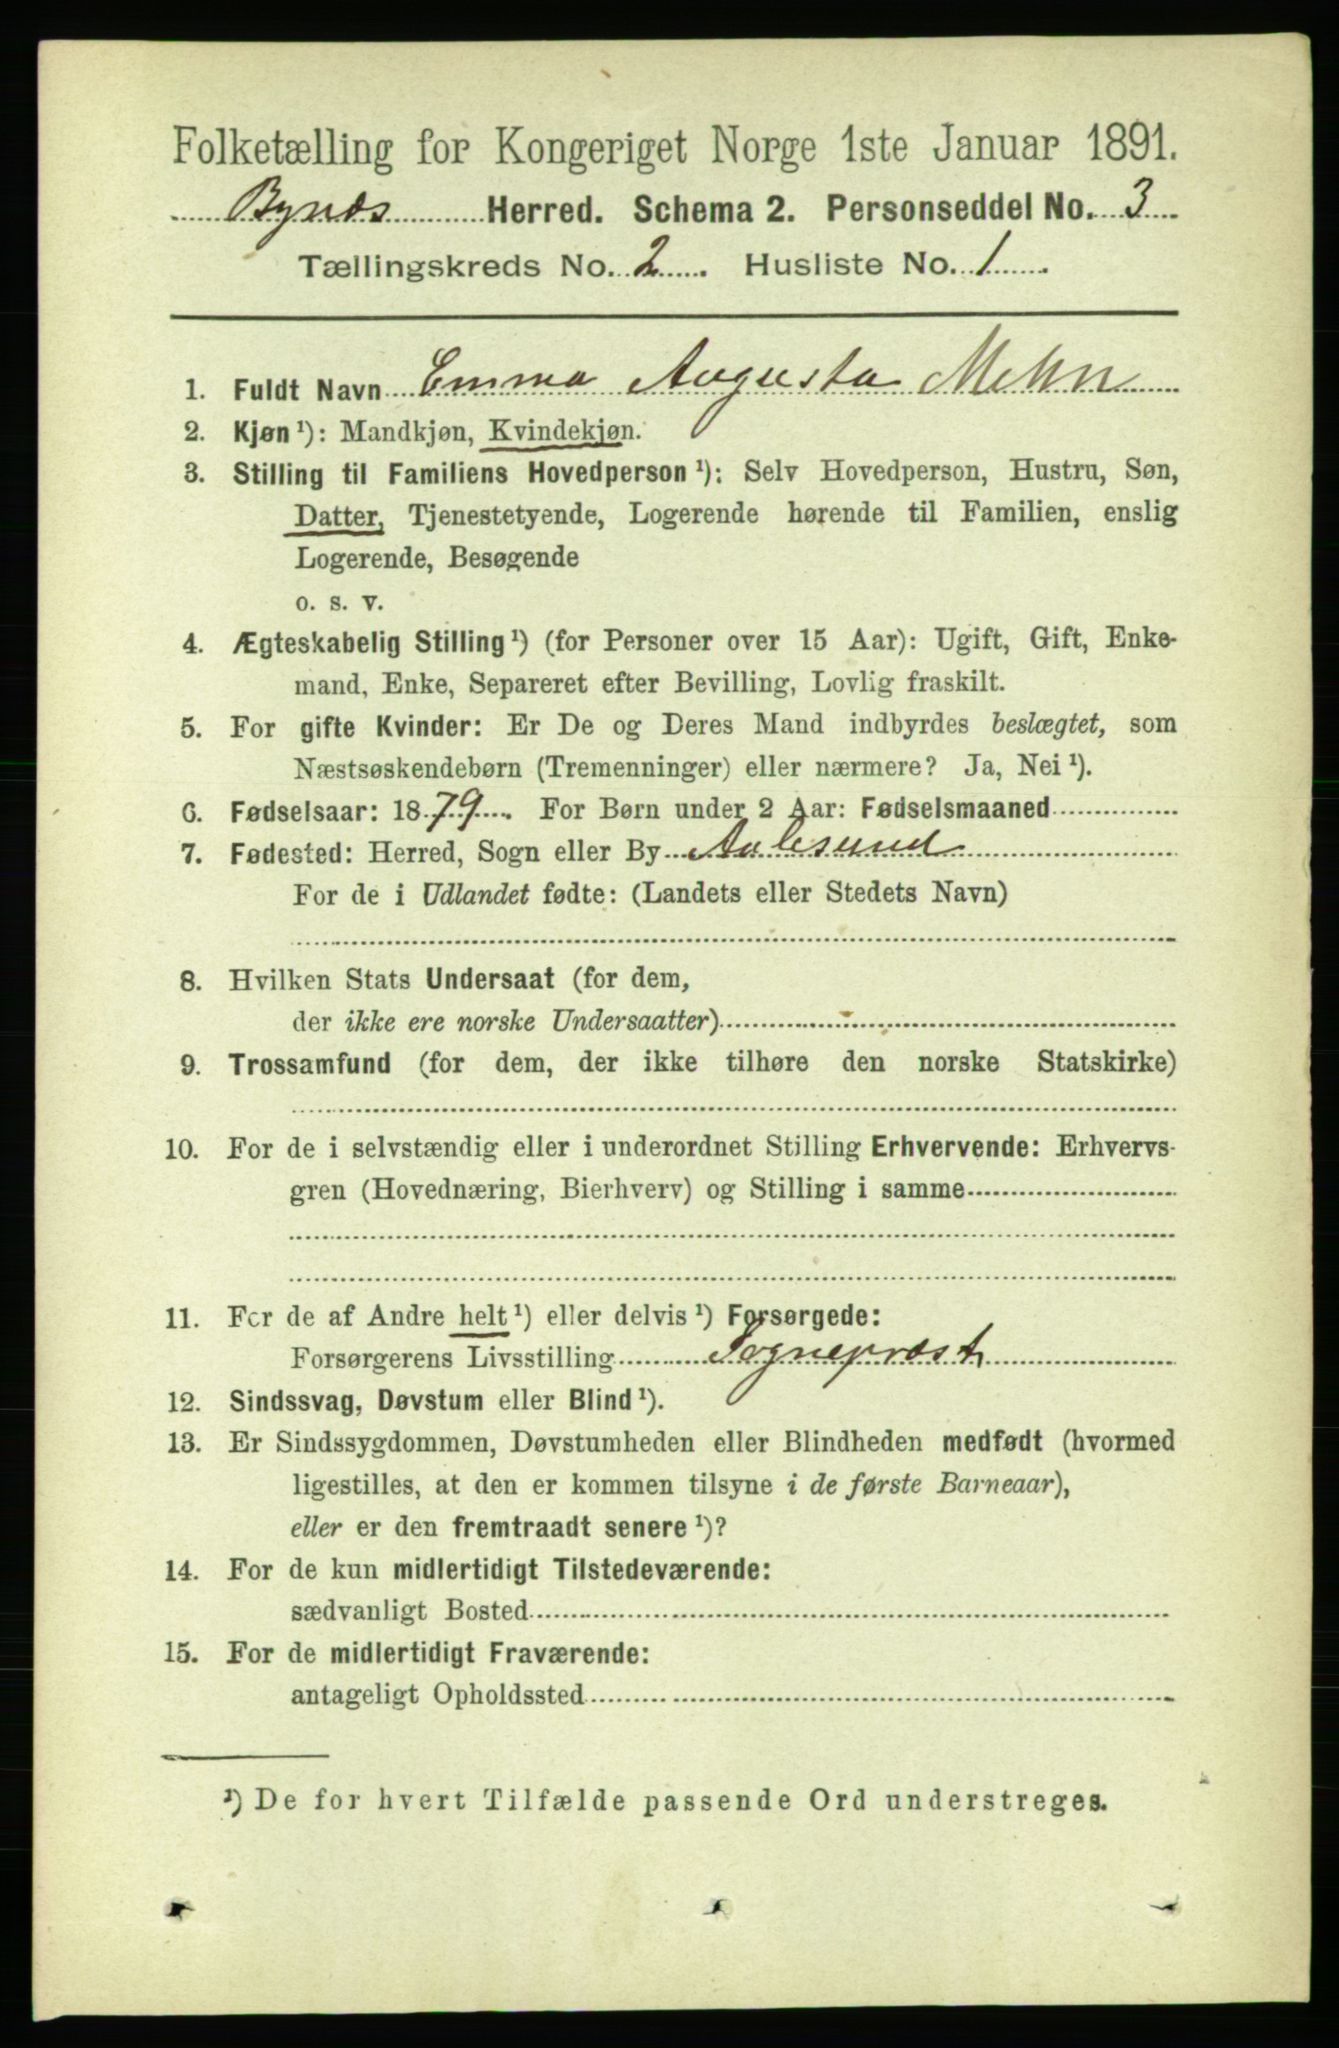 Folketælling for Kongeriget Norge 1ste Januar 1891.
Bynæs Herred. Schema 2. Personseddel No. 3
Tællingskreds No. 2 Husliste No. 1
1. Fuldt Navn Emma Augusta
2. Kjøn¹): Mandkjøn, Kvindekjøn.
3. Stilling til Familiens Hovedperson¹): Selv Hovedperson, Hustru, Søn,
Datter, Tjenestetyende, Logerende hørende til Familien, enslig
Logerende, Besøgende
o. s. v.
4. Ægteskabelig Stilling¹) (for Personer over 15 Aar): Ugift, Gift, Enke-
mand, Enke, Separeret efter Bevilling, Lovlig fraskilt.
5. For gifte Kvinder: Er De og Deres Mand indbyrdes beslægtet, som
Næstsøskendebørn (Tremenninger) eller nærmere? Ja, Nei¹).
6. Fødselsaar: 1879. For Børn under 2 Aar: Fødselsmaaned
7. Fødested: Herred, Sogn eller By Aalesund
For de i Udlandet fødte: (Landets eller Stedets Navn)
8. Hvilken Stats Undersaat (for dem,
der ikke ere norske Undersaatter)
9. Trossamfund (for dem, der ikke tilhøre den norske Statskirke)
10. For de i selvstændig eller i underordnet Stilling Erhvervende: Erhvervs-
gren (Hovednæring, Bierhverv) og Stilling i samme
11. For de af Andre helt¹) eller delvis¹) Forsørgede:
Forsørgerens Livsstilling Sognepræst
12. Sindssvag, Døvstum eller Blind¹).
13. Er Sindssygdommen, Døvstumheden eller Blindheden medfødt (hvormed
ligestilles, at den er kommen tilsyne i de første Barneaar),
eller er den fremtraadt senere¹)?
14. For de kun midlertidigt Tilstedeværende:
sædvanligt Bosted
15. For de midlertidigt Fraværende:
antageligt Opholdssted
¹) De for hvert Tilfælde passende Ord understreges.